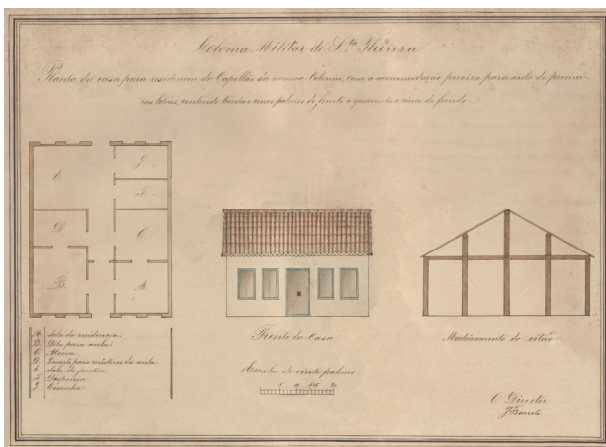 Colonia Militar de S.ta Thereza
Planta da casa para residencia do Capellão da mesma Colonia, com a accommodação precisa para aula de primei-
ras letras, contendo trinta e cinco palmos de frente e quarenta e cinco de fundo.
E J
F
D C
B A
A Sala da residencia.
B Dita para aula.
C Alcova
D Quarto para misteres da aula.
E Sala de jantar
F Dispensa.
J Cosinha.
Frente da Casa
Escala de vinte palmos
5 10 15 20
Madeiramento do oitão.
O Director
J Barreto